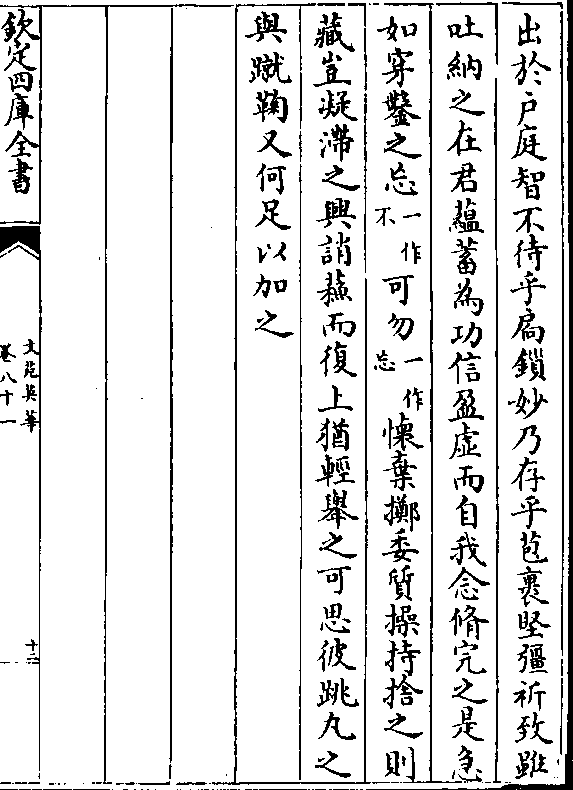 出於户庭智不待乎扃鎖妙乃存乎苞裹堅彊祈致雖
吐納之在君蘊蓄為功信盈虛而自我念脩完之是急
如穿鑿之忘一作不可勿一作忘懷棄擲委質操持捨之則
藏豈凝滯之興誚蘇而復上猶輕舉之可思彼跳丸之
與蹴鞠又何足以加之
欽定四庫全書
文苑英華
卷八十一
十三